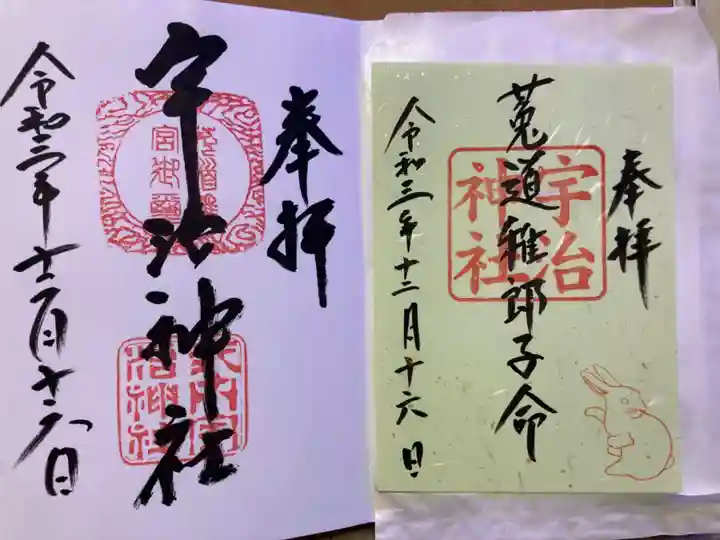 奉拝
宇治神社
令和三年十二月十六日
奉拝
菟道稚郎子命
宇治
神社
令和三年十二月十六日